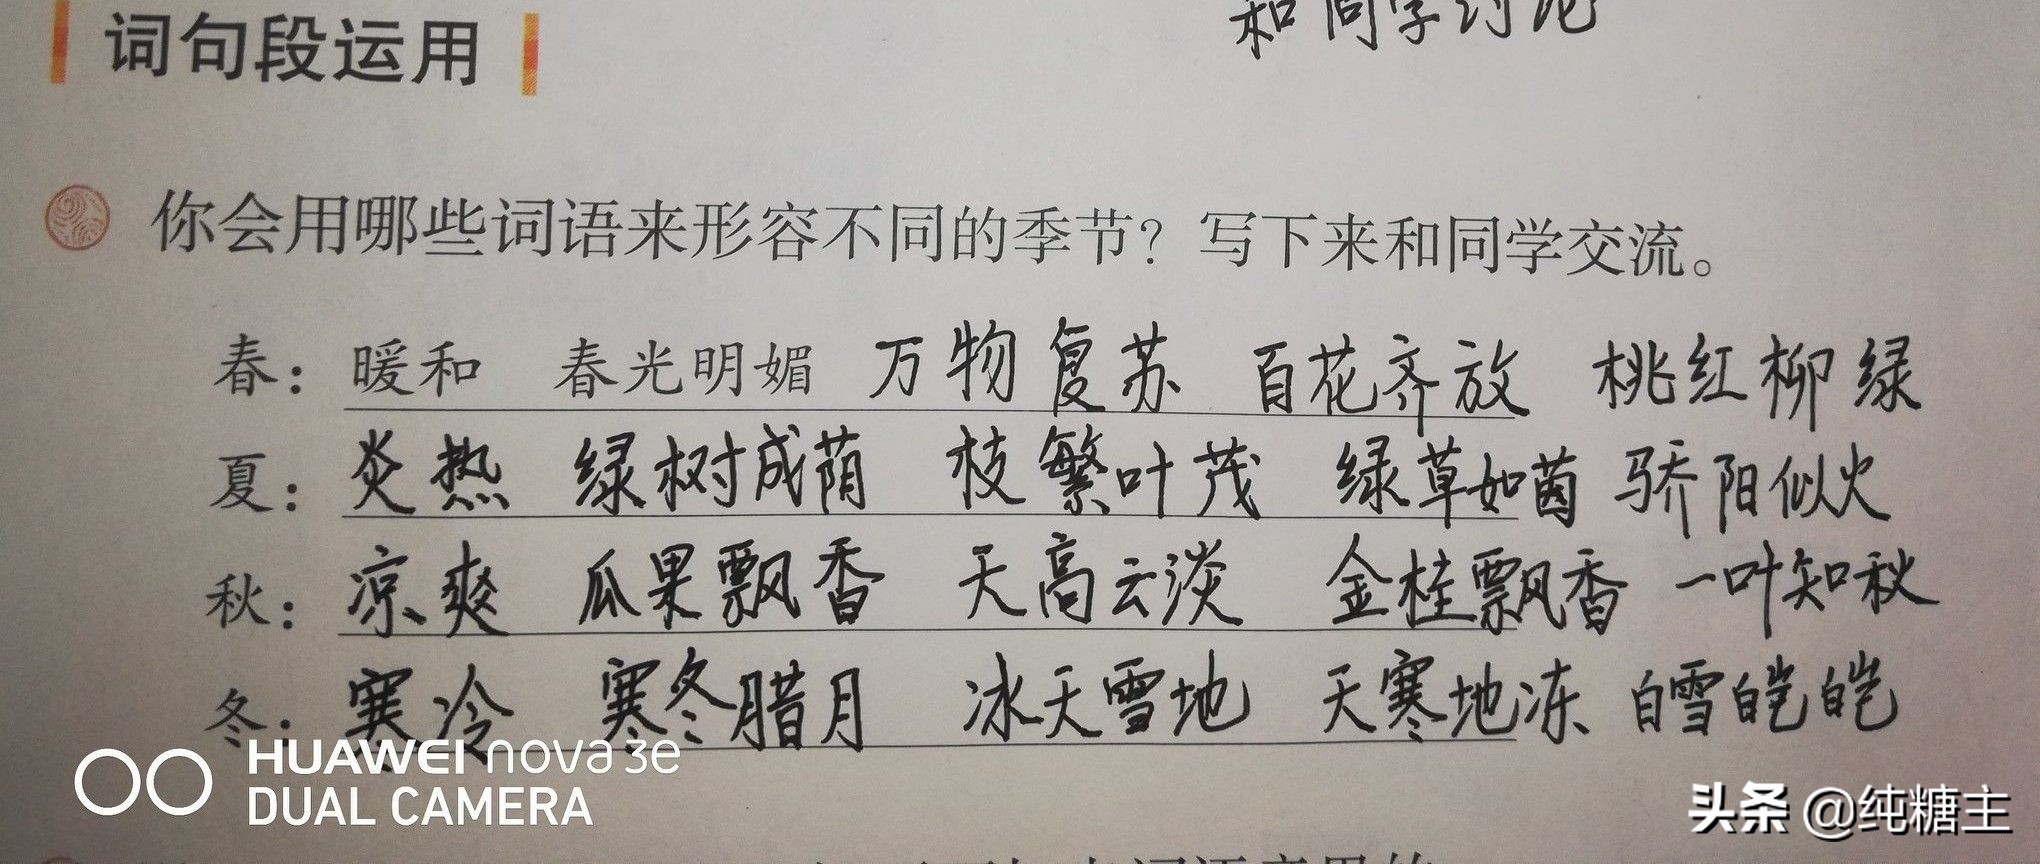 和同学讨论
词句段运用
你会用哪些词语来形容不同的季节？写下来和同学交流。
春：暖和 春光明媚 万物复苏 百花齐放 桃红柳绿
夏：炎热 绿树成荫 枝繁叶茂 绿草如茵 骄阳似火
秋：凉爽 瓜果飘香 天高云淡 金桂飘香 一叶知秋
冬：寒冷 寒冬腊月 冰天雪地 天寒地冻 白雪皑皑
HUAWEI nova 3e
DUAL CAMERA
头条 @纯糖主